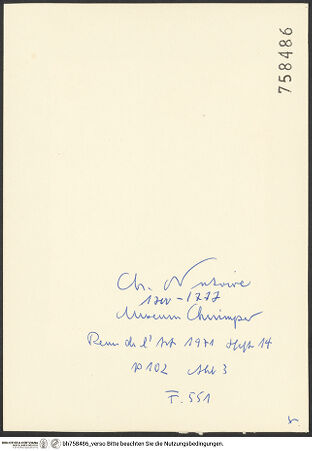 758486
Ch. Natoire
1700-1777
Museum
Revue de l'Art 1971 Heft 14
p 102 Abb 3
F. 551
bh758486_verso Bitte beachten Sie die Nutzungsbedingungen.